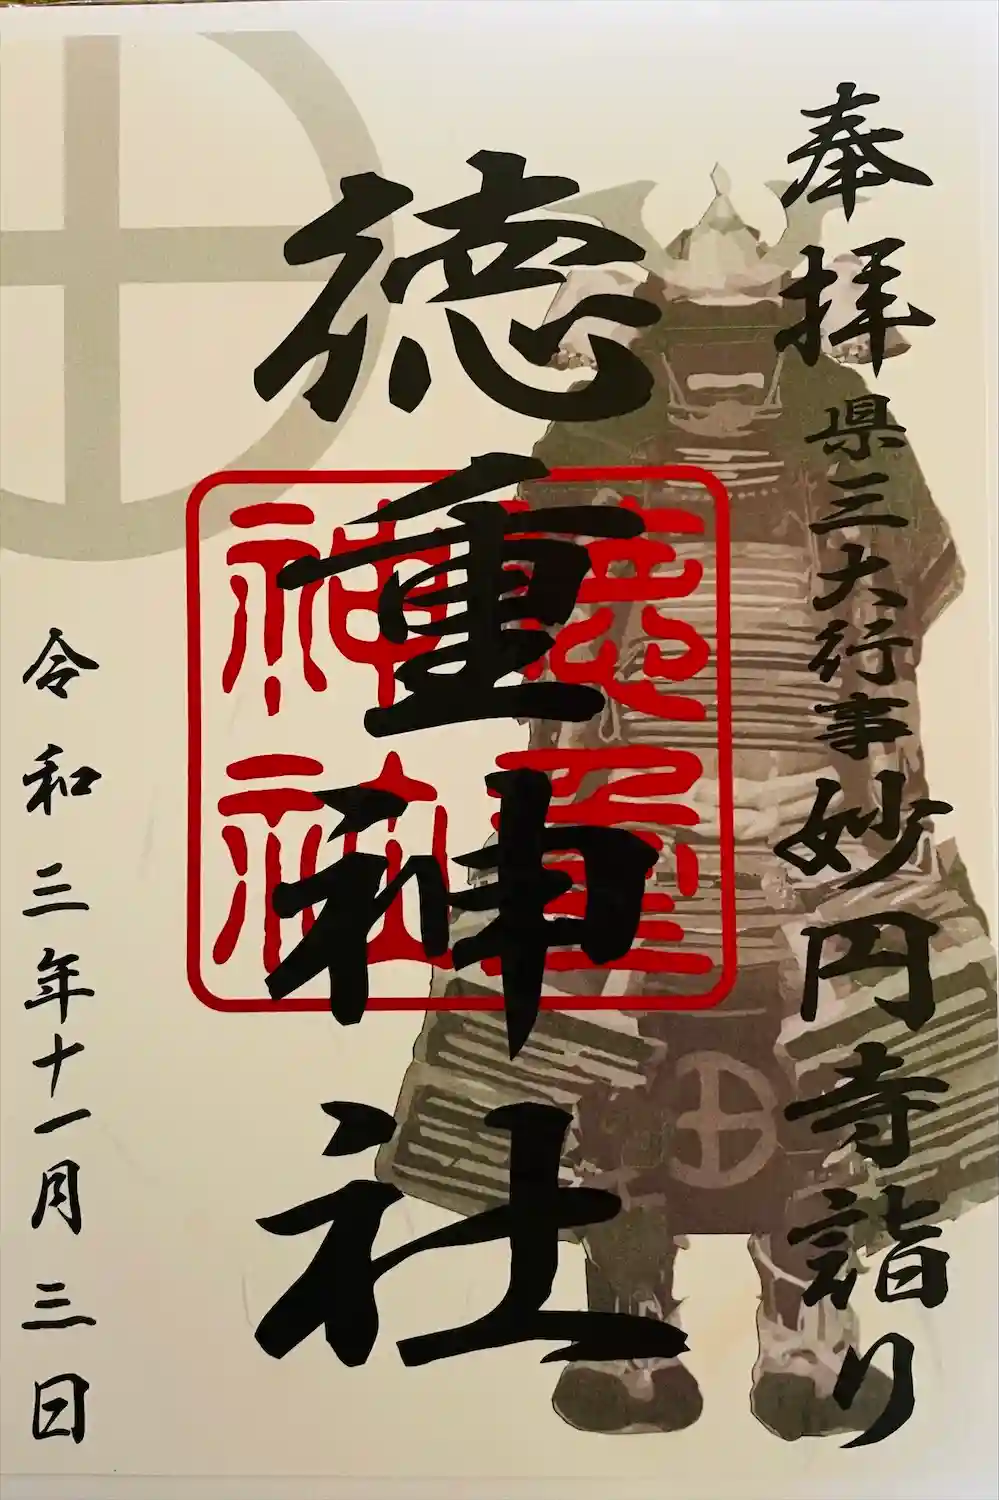 奉拝 県三大行事 妙円寺詣り
徳重神社
徳重
神社
令和三年十一月三日